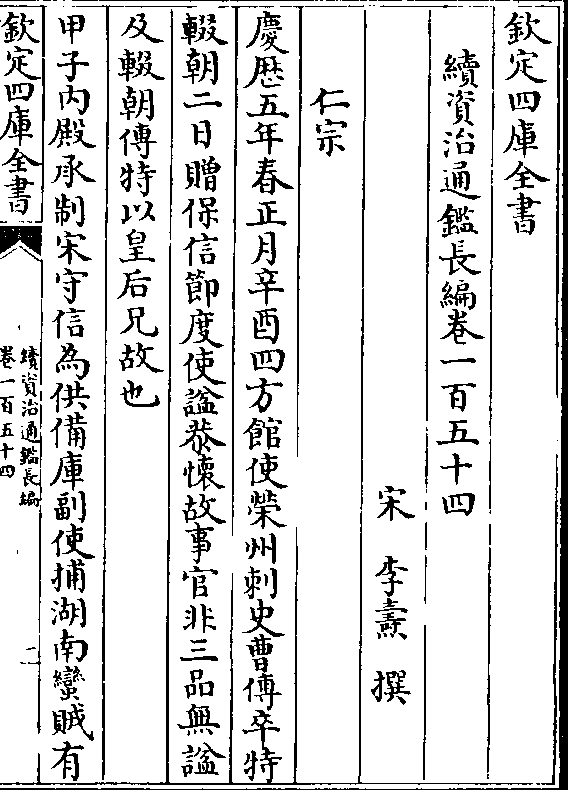 欽定四庫全書
續資治通鑑長編卷一百五十四
宋 李燾 撰
仁宗
慶歷五年春正月辛酉四方館使榮州刺史曹傅卒特
輟朝二日贈保信節度使謚恭懷故事官非三品無謚
及輟朝傅特以皇后兄故也
甲子內殿承制宋守信為供備庫副使捕湖南蠻賊有
欽定四庫全書
續資治通鑑長編
卷一百五十四